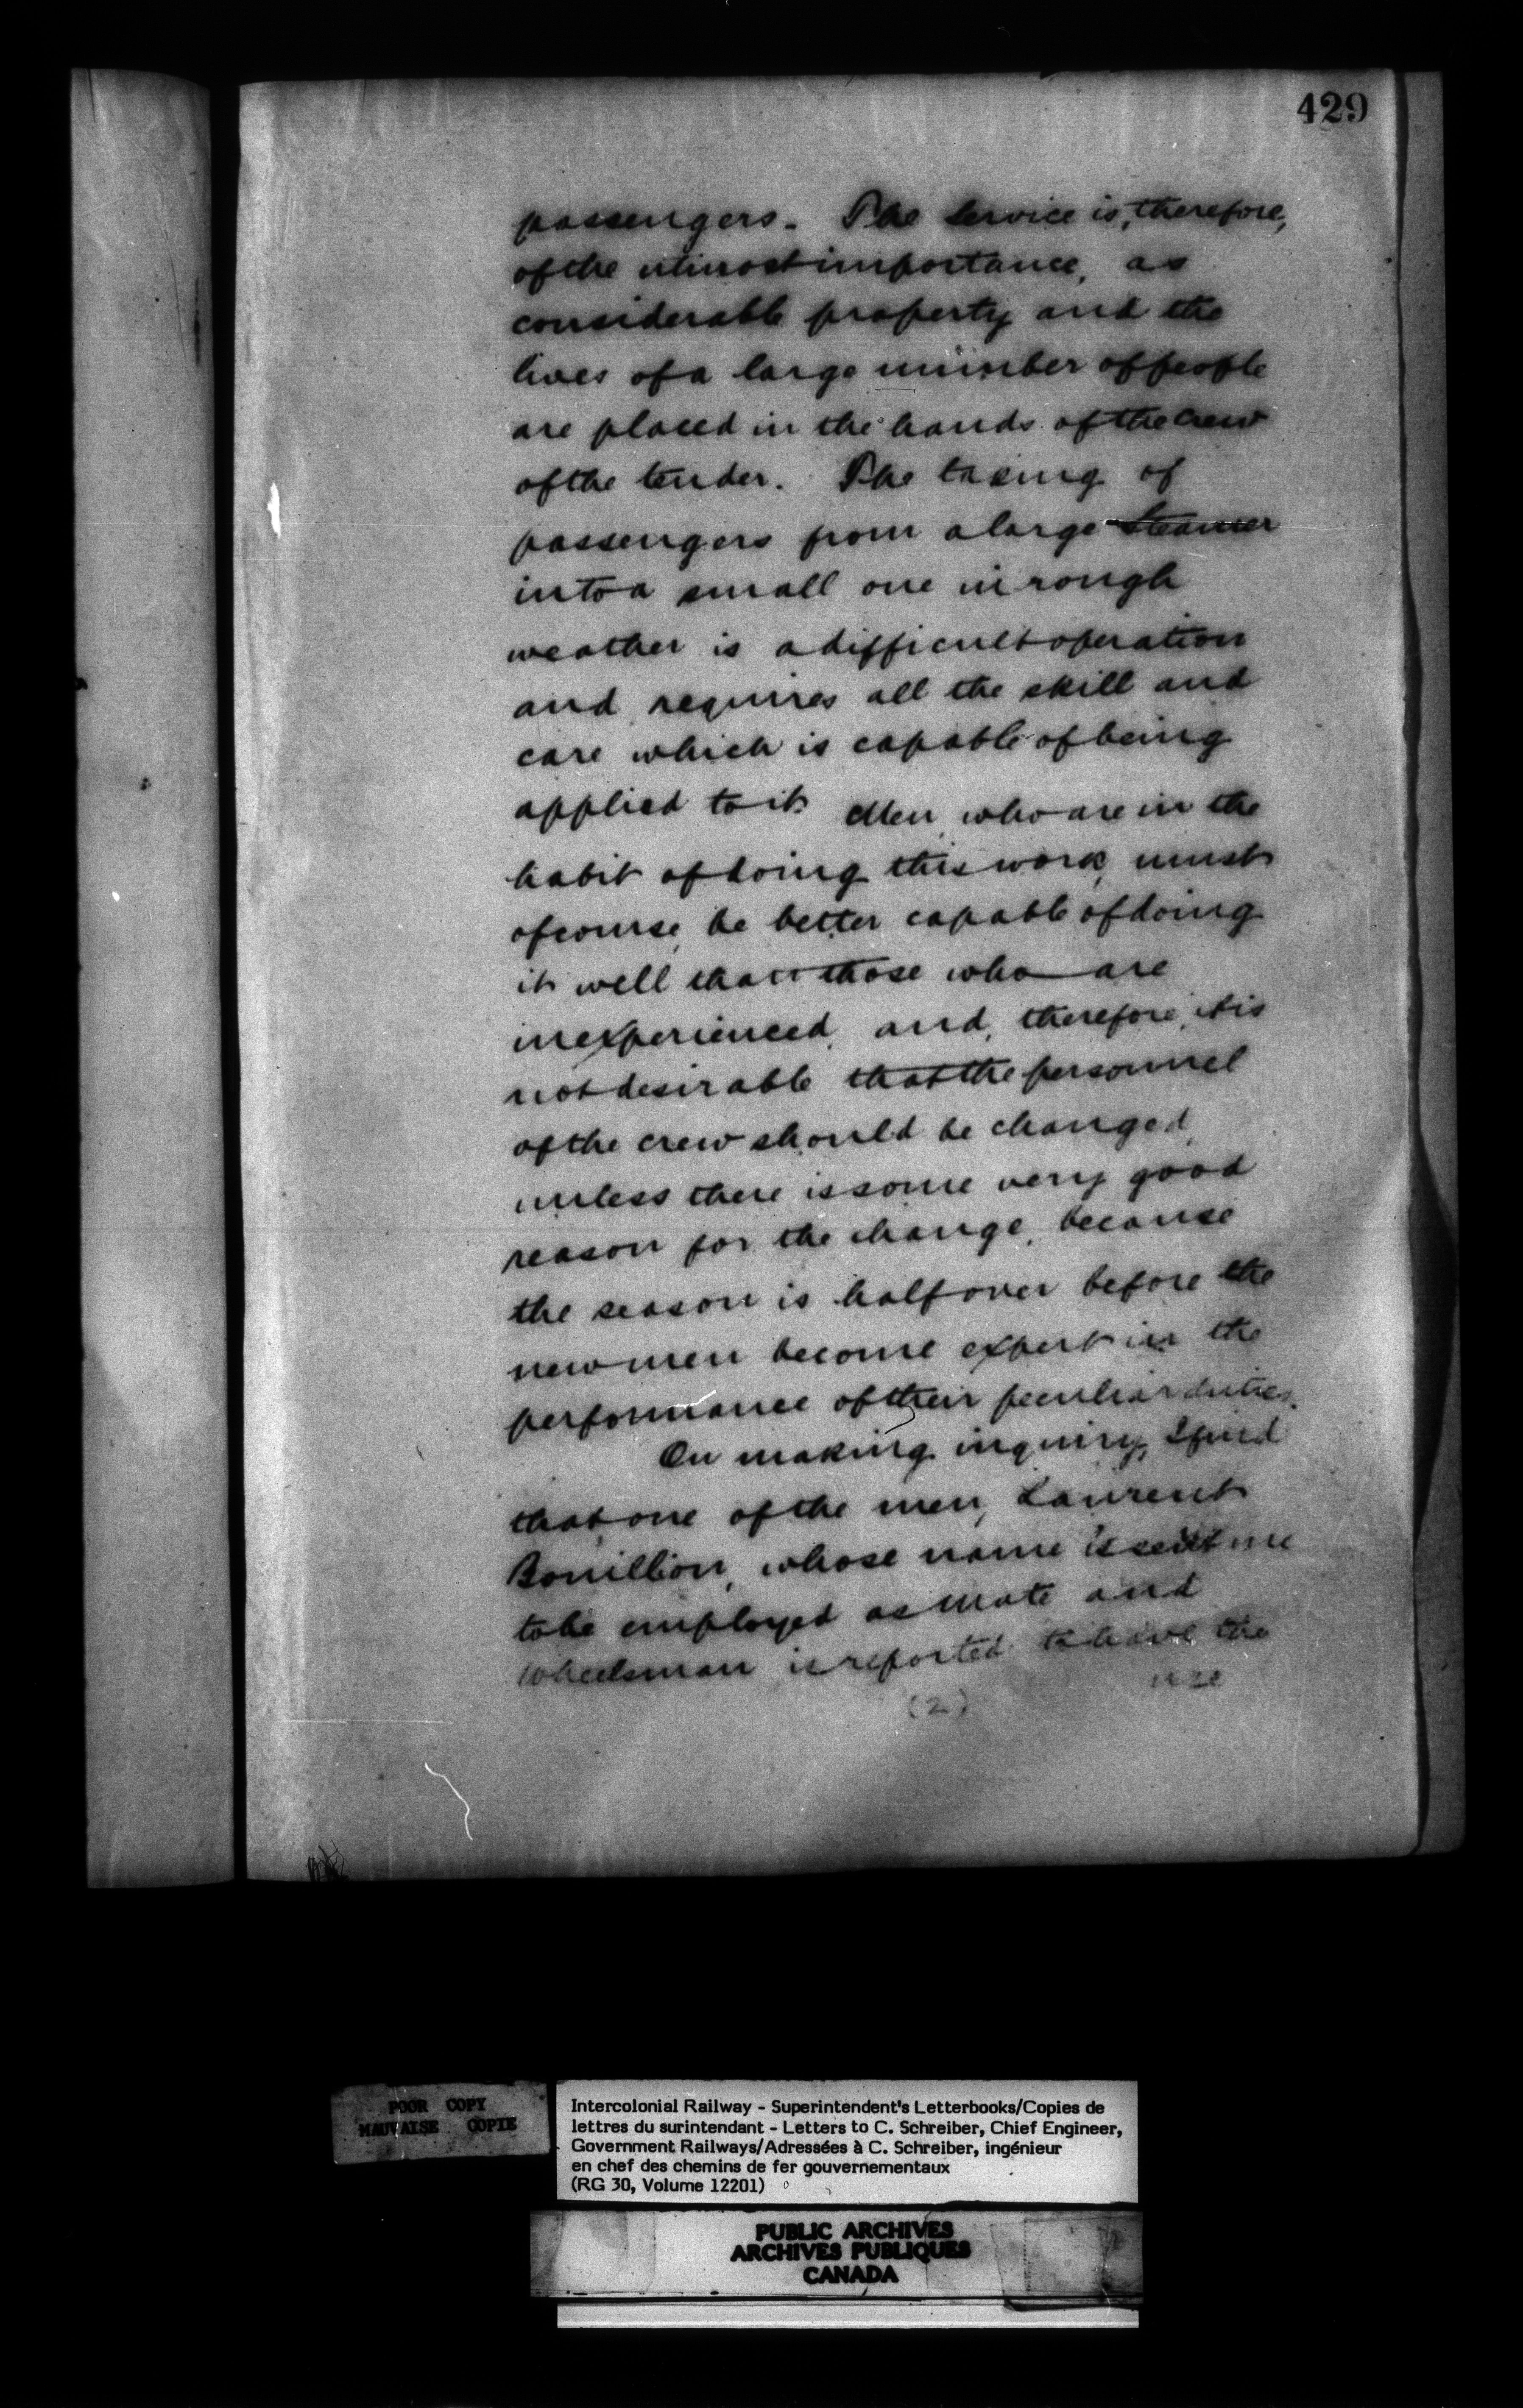 429
passengers. The service is, therefore,
of the utmost importance, as
considerable property and the
lives of a large number of people
are placed in the hands of the crew
of the tender. The taking of
passengers from a large steamer
into a small one in rough
weather is a difficult operation
and requires all the skill and
care which is capable of being
applied to it. Men who are in the
habit of doing this work, must
of course, be better capable of doing
it well than those who are
inexperienced, and, therefore, it is
not desirable that the personnel
of the crew should be changed,
unless there is some very good
reason for the change, because
the season is half over before the
new men become expert in the
performance of their peculiar duties.
On making inquiry, I find
that one of the men, Laurent
Bouillion, whose name is sent me
to be employed as mate and
wheelsman is reported to have the
(2) use
POOR COPY
MAUVAISE COPIE
Intercolonial Railway - Superintendent's Letterbooks/Copies de
lettres du surintendant - Letters to C. Schreiber, Chief Engineer,
Government Railways/Adressées à C. Schreiber, ingénieur
en chef des chemins de fer gouvernementaux
(RG 30, Volume 12201)
PUBLIC ARCHIVES
ARCHIVES PUBLIQUES
CANADA